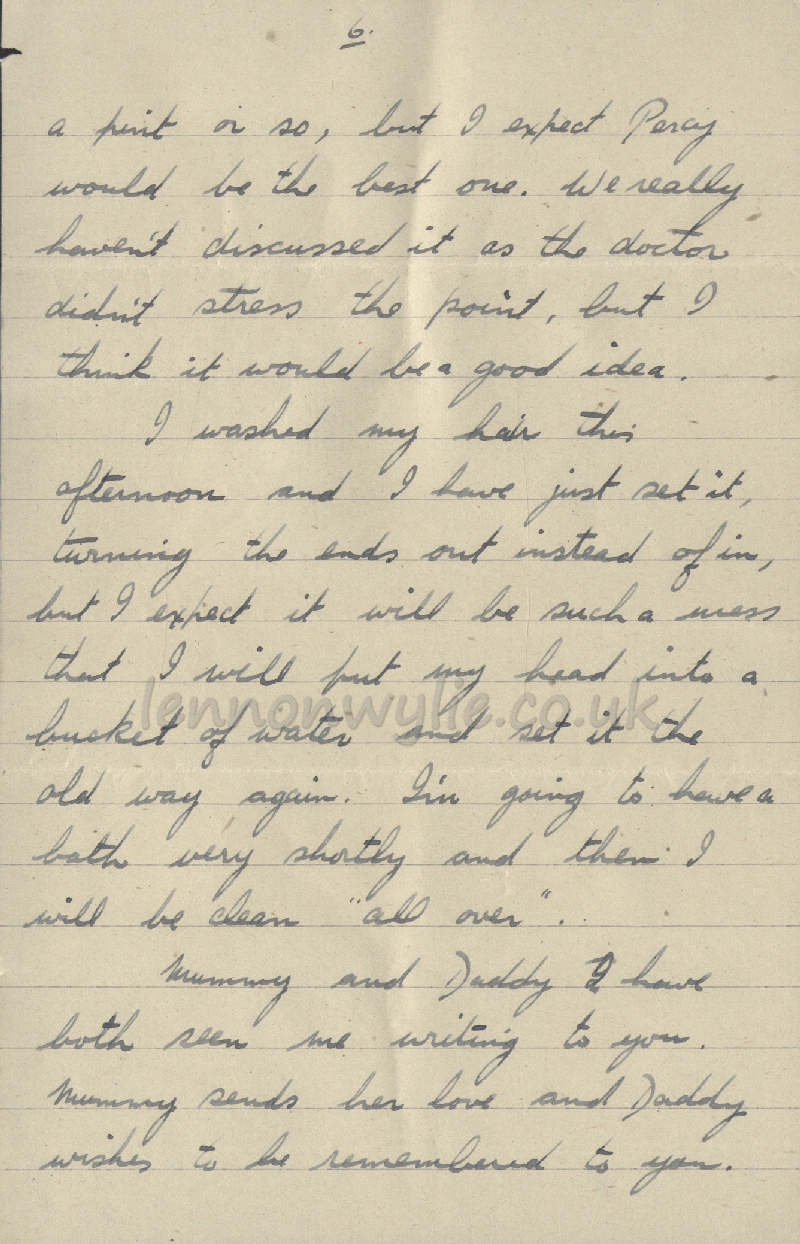 6.
a pint or so, but I expect Percy
would be the best one. We really
haven't discussed it as the doctor
didn't stress the point, but I
think it would be a good idea.
I washed my hair this
afternoon and I have just set it,
turning the ends out instead of in,
but I expect it will be such a mess
that I will put my head into a
lennonwylie.co.uk
bucket of water and set it the
old way again. I'm going to have a
bath very shortly and then I
will be clean "all over".
Mummy and Daddy I have
both seen me writing to you.
Mummy sends her love and Daddy
wishes to be remembered to you.